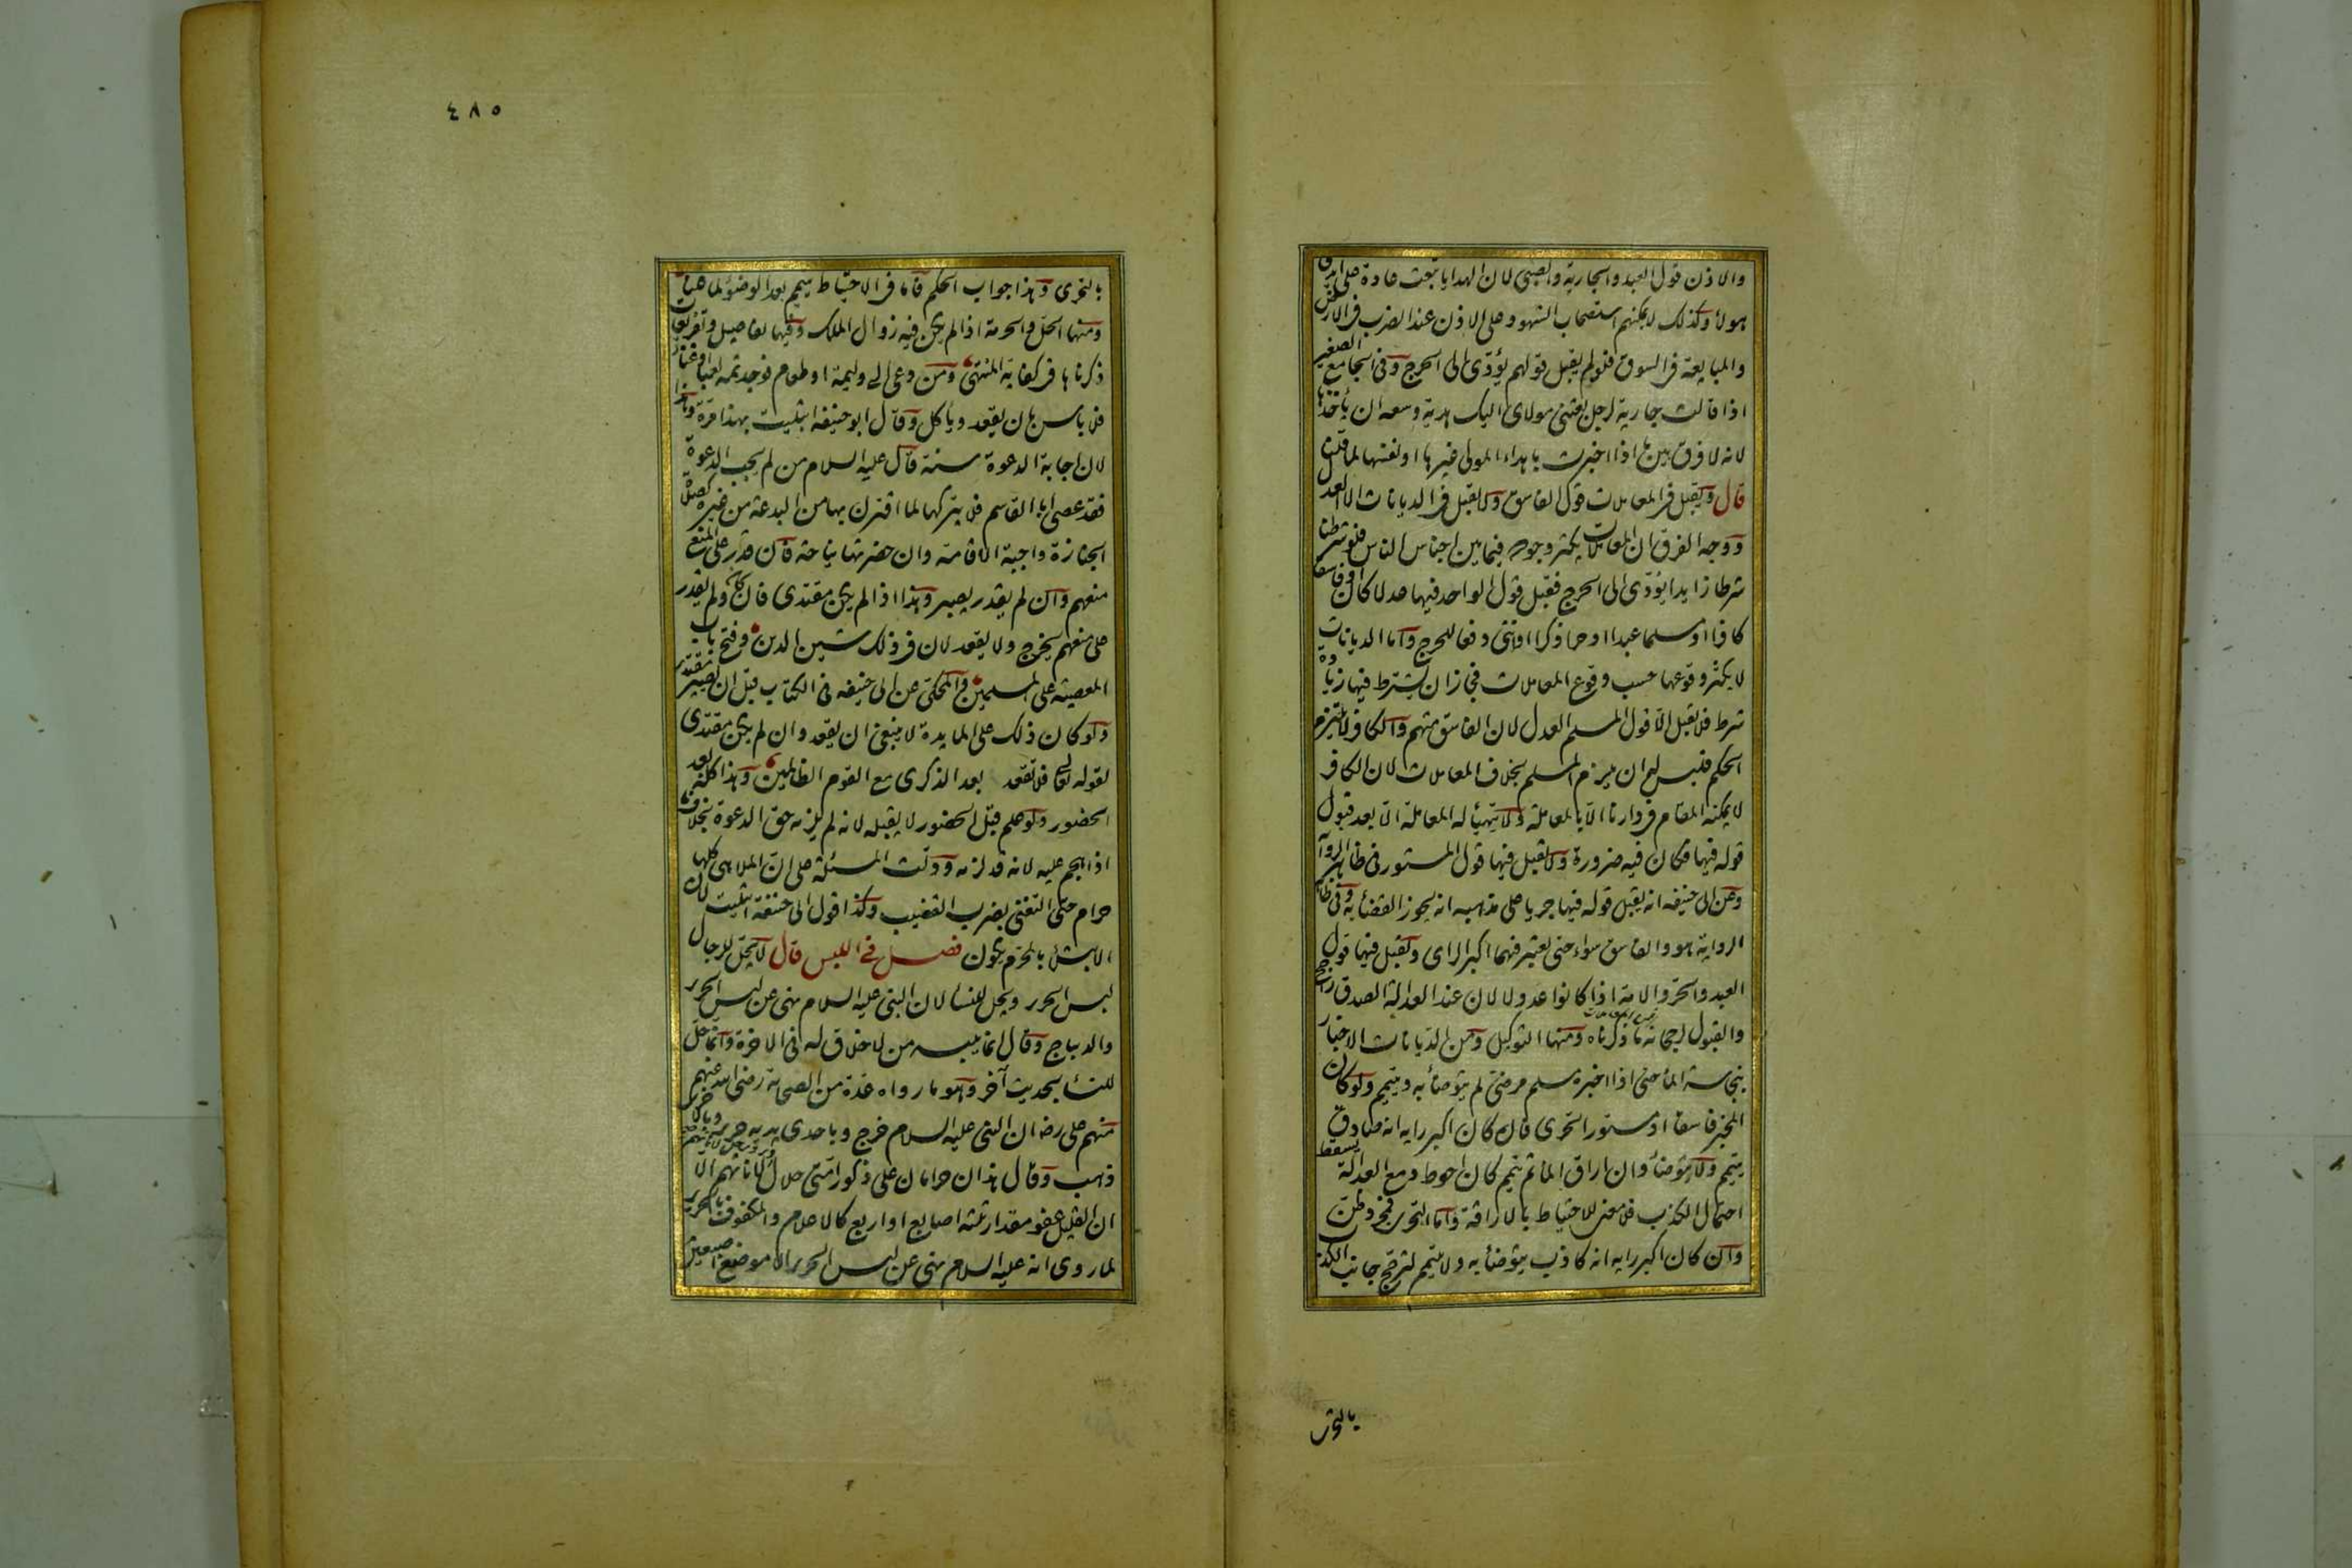 والاذن قول العبد والجارية والصبي لان الهدايا تبعث عادة على ايدي
هولاء وكذلك لا يمكنهم استصحاب الشهود على الاذن عند الضرب في الارض
والمبايعة في السوق فلو لم يقبل قولهم يؤدى الى الحرج وفى الجامع الصغير
اذا قالت جارية لرجل بعثنى مولاى اليك هدية وسعه ان ياخذها
لانه لا فرق بين ما اذا اخبرت باهداء المولى غيرها او نفسها لما قلنا
قال ويقبل في المعاملات قول الفاسق ولا يقبل في الديانات الا العدل
ووجه الفرق ان المعاملات يكثر وجودها فيما بين اجناس الناس فلو شرطنا
شرطا زايدا يؤدى الى الحرج فقبل قول الواحد فيها عدلا كان او فاسقا
كافرا او مسلما عبدا او حرا ذكرا او انثى دفعا للحرج واما الديانات
لا يكثر وقوعها حسب وقوع المعاملات فجاز ان يشترط فيها زيادة
شرط فلا يقبل الا قول المسلم العدل لان الفاسق متهم والكافر لا يلتزم
الحكم فليس له ان يلزم المسلم بخلاف المعاملات لان الكافر
لا يمكنه المقام في دارنا الا بالمعاملة ولا يتهيأ له المعاملة الا بعد قبول
قوله فيها فكان فيه ضرورة ولا يقبل فيها قول المستور في ظاهر الرواية
وعن ابى حنيفه انه يقبل قوله فيها جريا على مذهبه انه يجوز القضاء به وفى ظاهر
الرواية هو والفاسق سواء حتى يعتبر فيهما اكبر الراى ويقبل فيها قول
العبد والحر والامة اذا كانوا عدولا لان عند العدالة الصدق راجح
والقبول لرجحانه ما ذكرناه ومنها التوكيل ومن الديانات الاخبار
بنجاسة الماء حتى اذا اخبره مسلم مرضى لم يتوضأ به ويتيمم ولو كان
المخبر فاسقا او مستورا تحرى فان كان اكبر رايه انه صادق
يتيمم ولا يتوضأ وان اراق الماء ثم تيمم كان احوط ومع العدالة يسقط
احتمال الكذب فلا معنى للاحتياط بالاراقة واما التحرى فمجرد ظن
وان كان اكبر رايه انه كاذب يتوضأ به ولا يتيمم لترجح جانب الكذب
بالتحرى
٤٨٥
بالتحرى وهذا جواب الحكم فاما في الاحتياط يتيمم بعد الوضوء لما قلنا
ومنها الحل والحرمة اذا لم يكن فيه زوال الملك وفيها تفاصيل وتفريعات
ذكرناها في كفاية المنتهى ومن دعى الى وليمة او طعام فوجد ثمه لعبا او غناء
فلا باس بان يقعد وياكل وقال ابو حنيفه ابتليت بهذا مرة وهذا
لان اجابة الدعوة سنة قال عليه السلام من لم يجب الدعوة
فقد عصى ابا القاسم فلا يتركها لما اقترن بها من البدعة من غيره كصلاة
الجنازة واجبة الاقامة وان حضرتها نياحة فان قدر على المنع
منعهم وان لم يقدر يصبر وهذا اذا لم يكن مقتدى فان كان ولم يقدر
على منعهم يخرج ولا يقعد لان في ذلك شين الدين وفتح باب
المعصية على المسلمين والمحكى عن ابى حنيفه فى الكتاب قبل ان يصير مقتدى
ولو كان ذلك على المايدة لا ينبغى ان يقعد وان لم يكن مقتدى
لقوله تعالى فلا تقعد بعد الذكرى مع القوم الظالمين وهذا كله بعد
الحضور ولو علم قبل الحضور لا يقبله لانه لم يلزمه حق الدعوة بخلاف ما
اذا هجم عليه لانه قد لزمه ودلت المسئلة على ان الملاهى كلها
حرام حتى التغنى بضرب القضيب وكذا قول ابى حنيفة ابتليت لان
الابتلاء بالمحرم يكون فصل في اللبس قال لا يحل للرجال
لبس الحرير ويحل للنساء لان النبى عليه السلام نهى عن لبس الحرير
والديباج وقال انما يلبسه من لا خلاق له فى الاخرة وانما حل
للنساء بحديث آخر وهو ما رواه عدة من الصحابة رضى الله عنهم
منهم على رضه ان النبى عليه السلام خرج وباحدى يديه حرير وبالاخرى
ذهب وقال هذان حرامان على ذكور امتى حلال لاناثهم الا
ان القليل عفو مقدار ثلثه اصابع او اربع كالاعلام والمكفوف بالحرير
لما روى انه عليه السلام نهى عن لبس الحرير الا موضع اصبعين